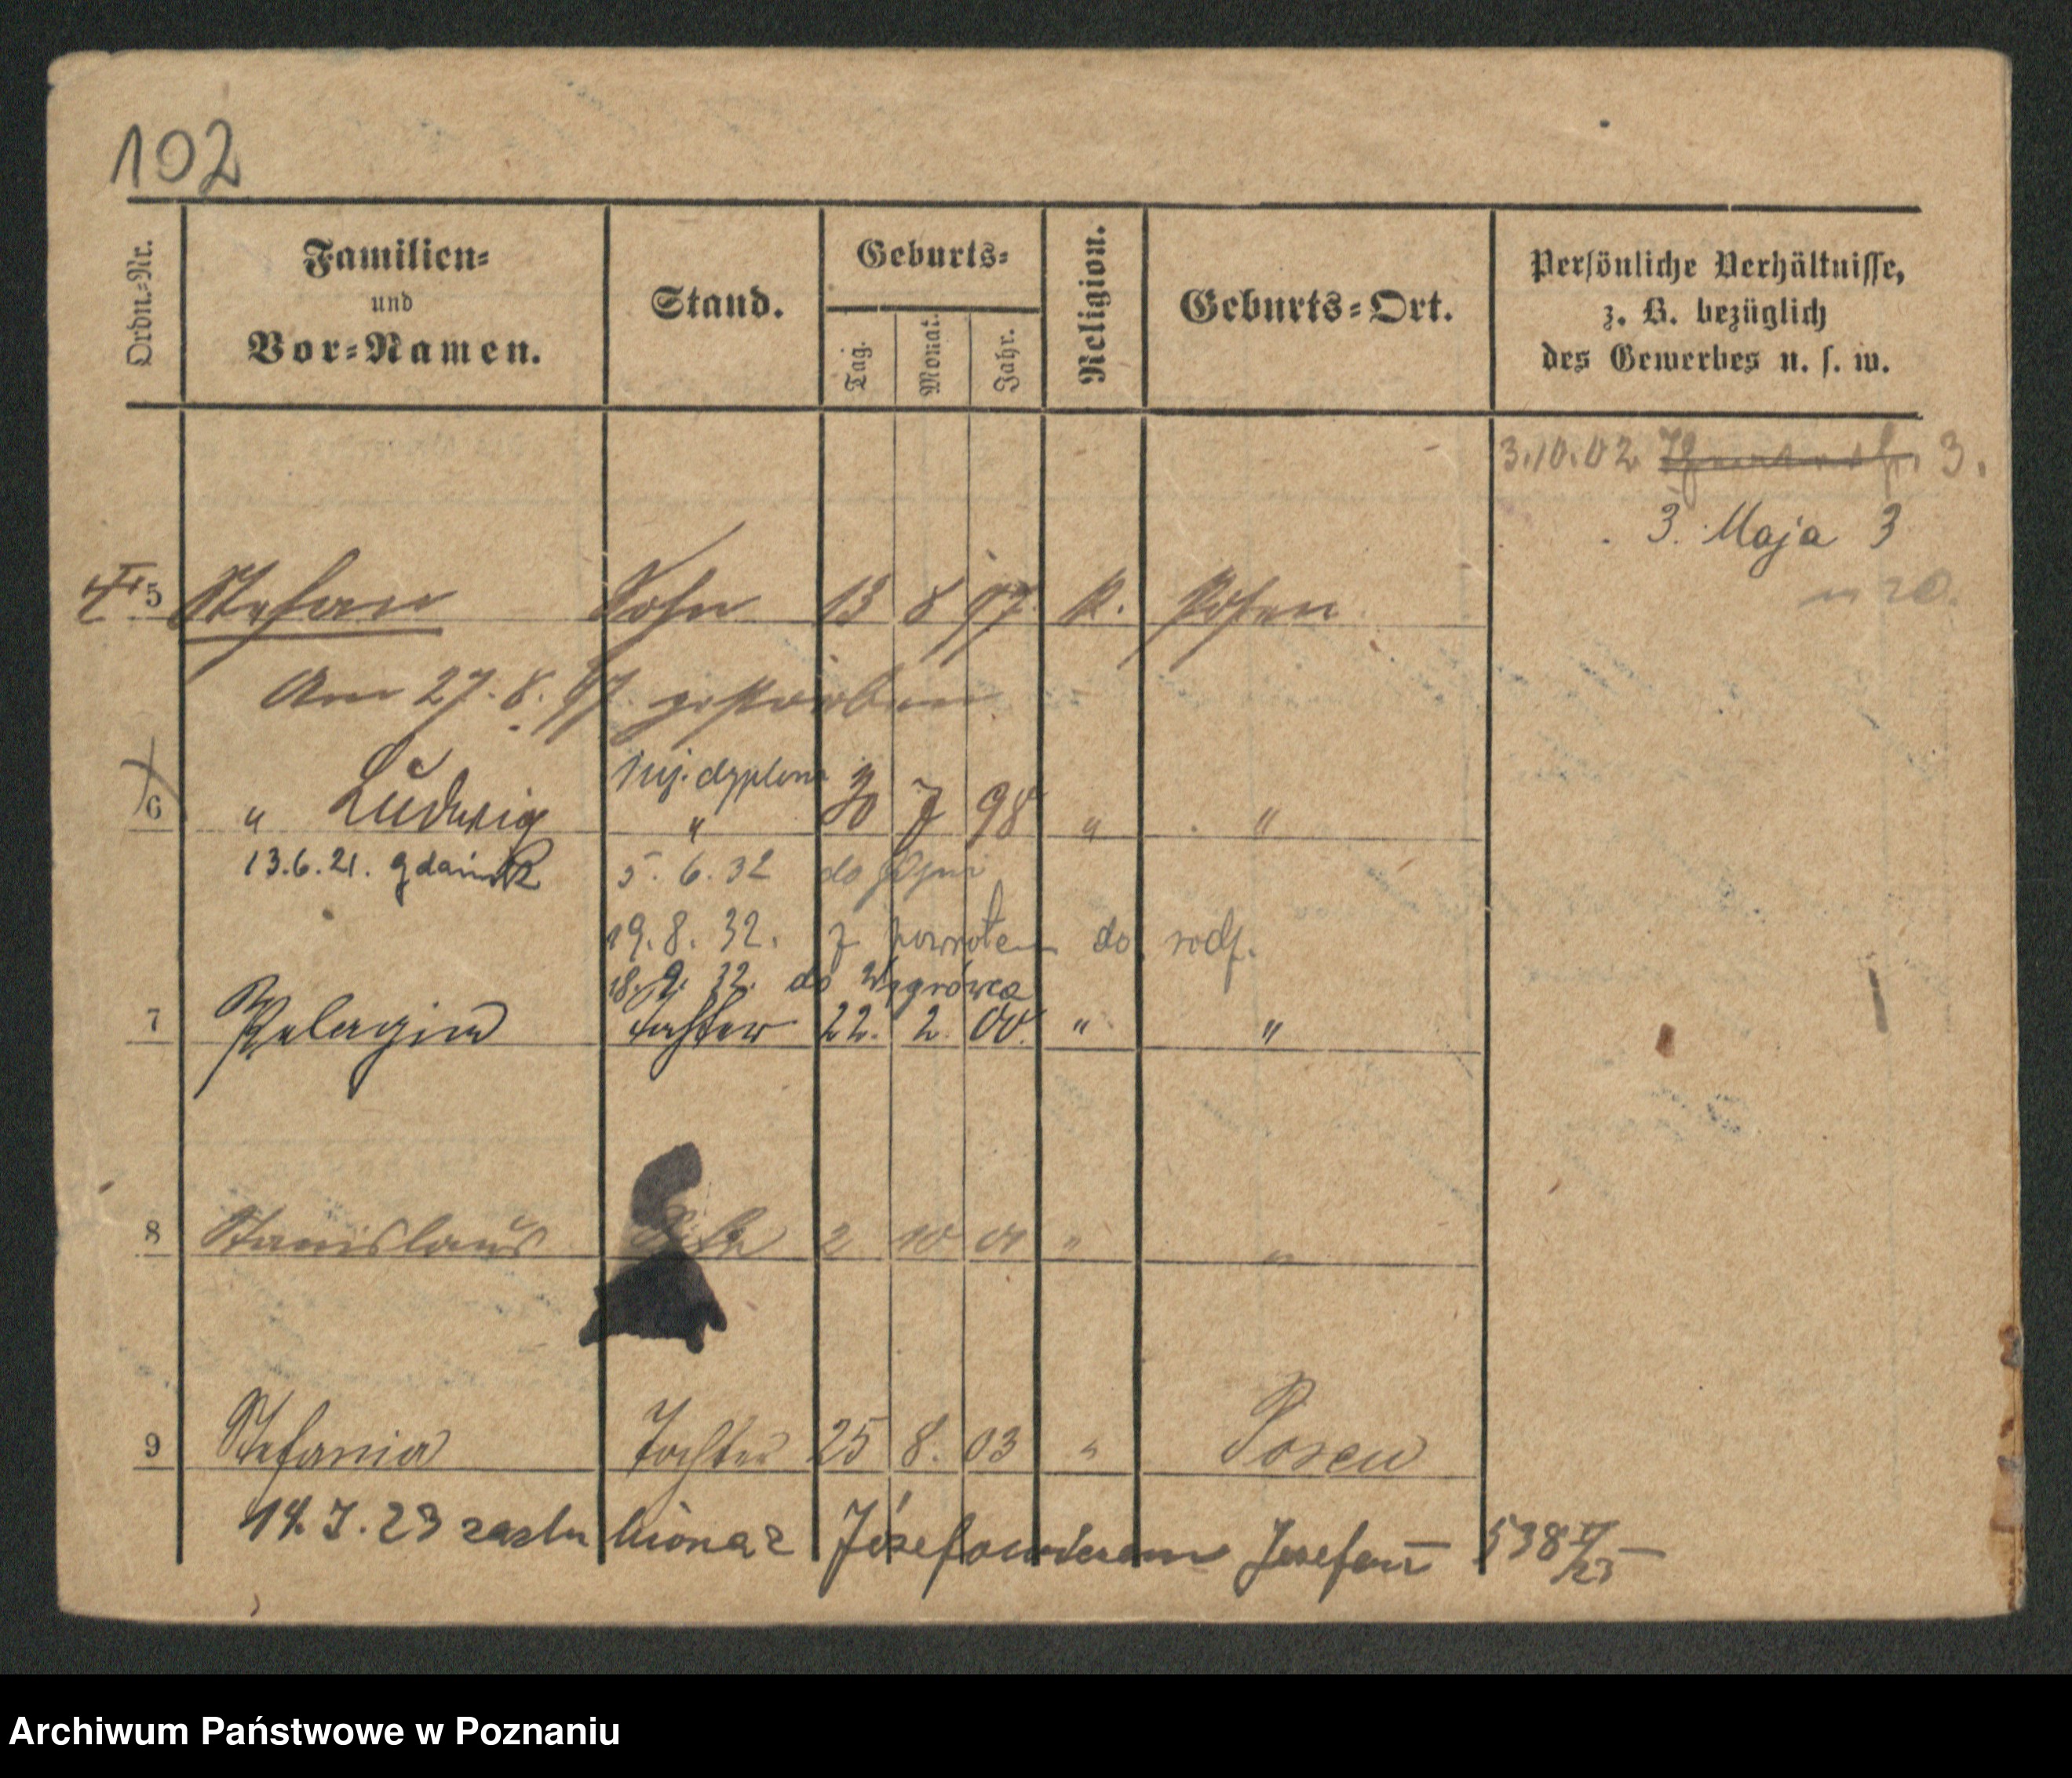 102
Ordn.-Nr.
Familien-
und
Vor-Namen.
Stand.
Geburts-
Tag.
Monat.
Jahr.
Religion.
Geburts-Ort.
Persönliche Verhältnisse,
z. B. bezüglich
des Gewerbes u. s. w.
3.10.02 3.
3. Maja 3
5 Stefan Sohn 13 8 97. k. Posen
Am 27.8.97. gestorben
inż. dyplom
6 " Ludwig " 30 7 98 " "
13.6.21. Gdańsk 5.6.32 do
19.8.32. z powrotem do rodz.
18.9.32. do Wągrówca
7 Pelagia Tochter 22. 2. 00. " "
8 Stanislaus 2 10 01 " "
9 Stefania Tochter 25 8. 03 " Posen
14.I.23 zaslubiona z Józefowiczem Josefem 538 II/23
Archiwum Państwowe w Poznaniu